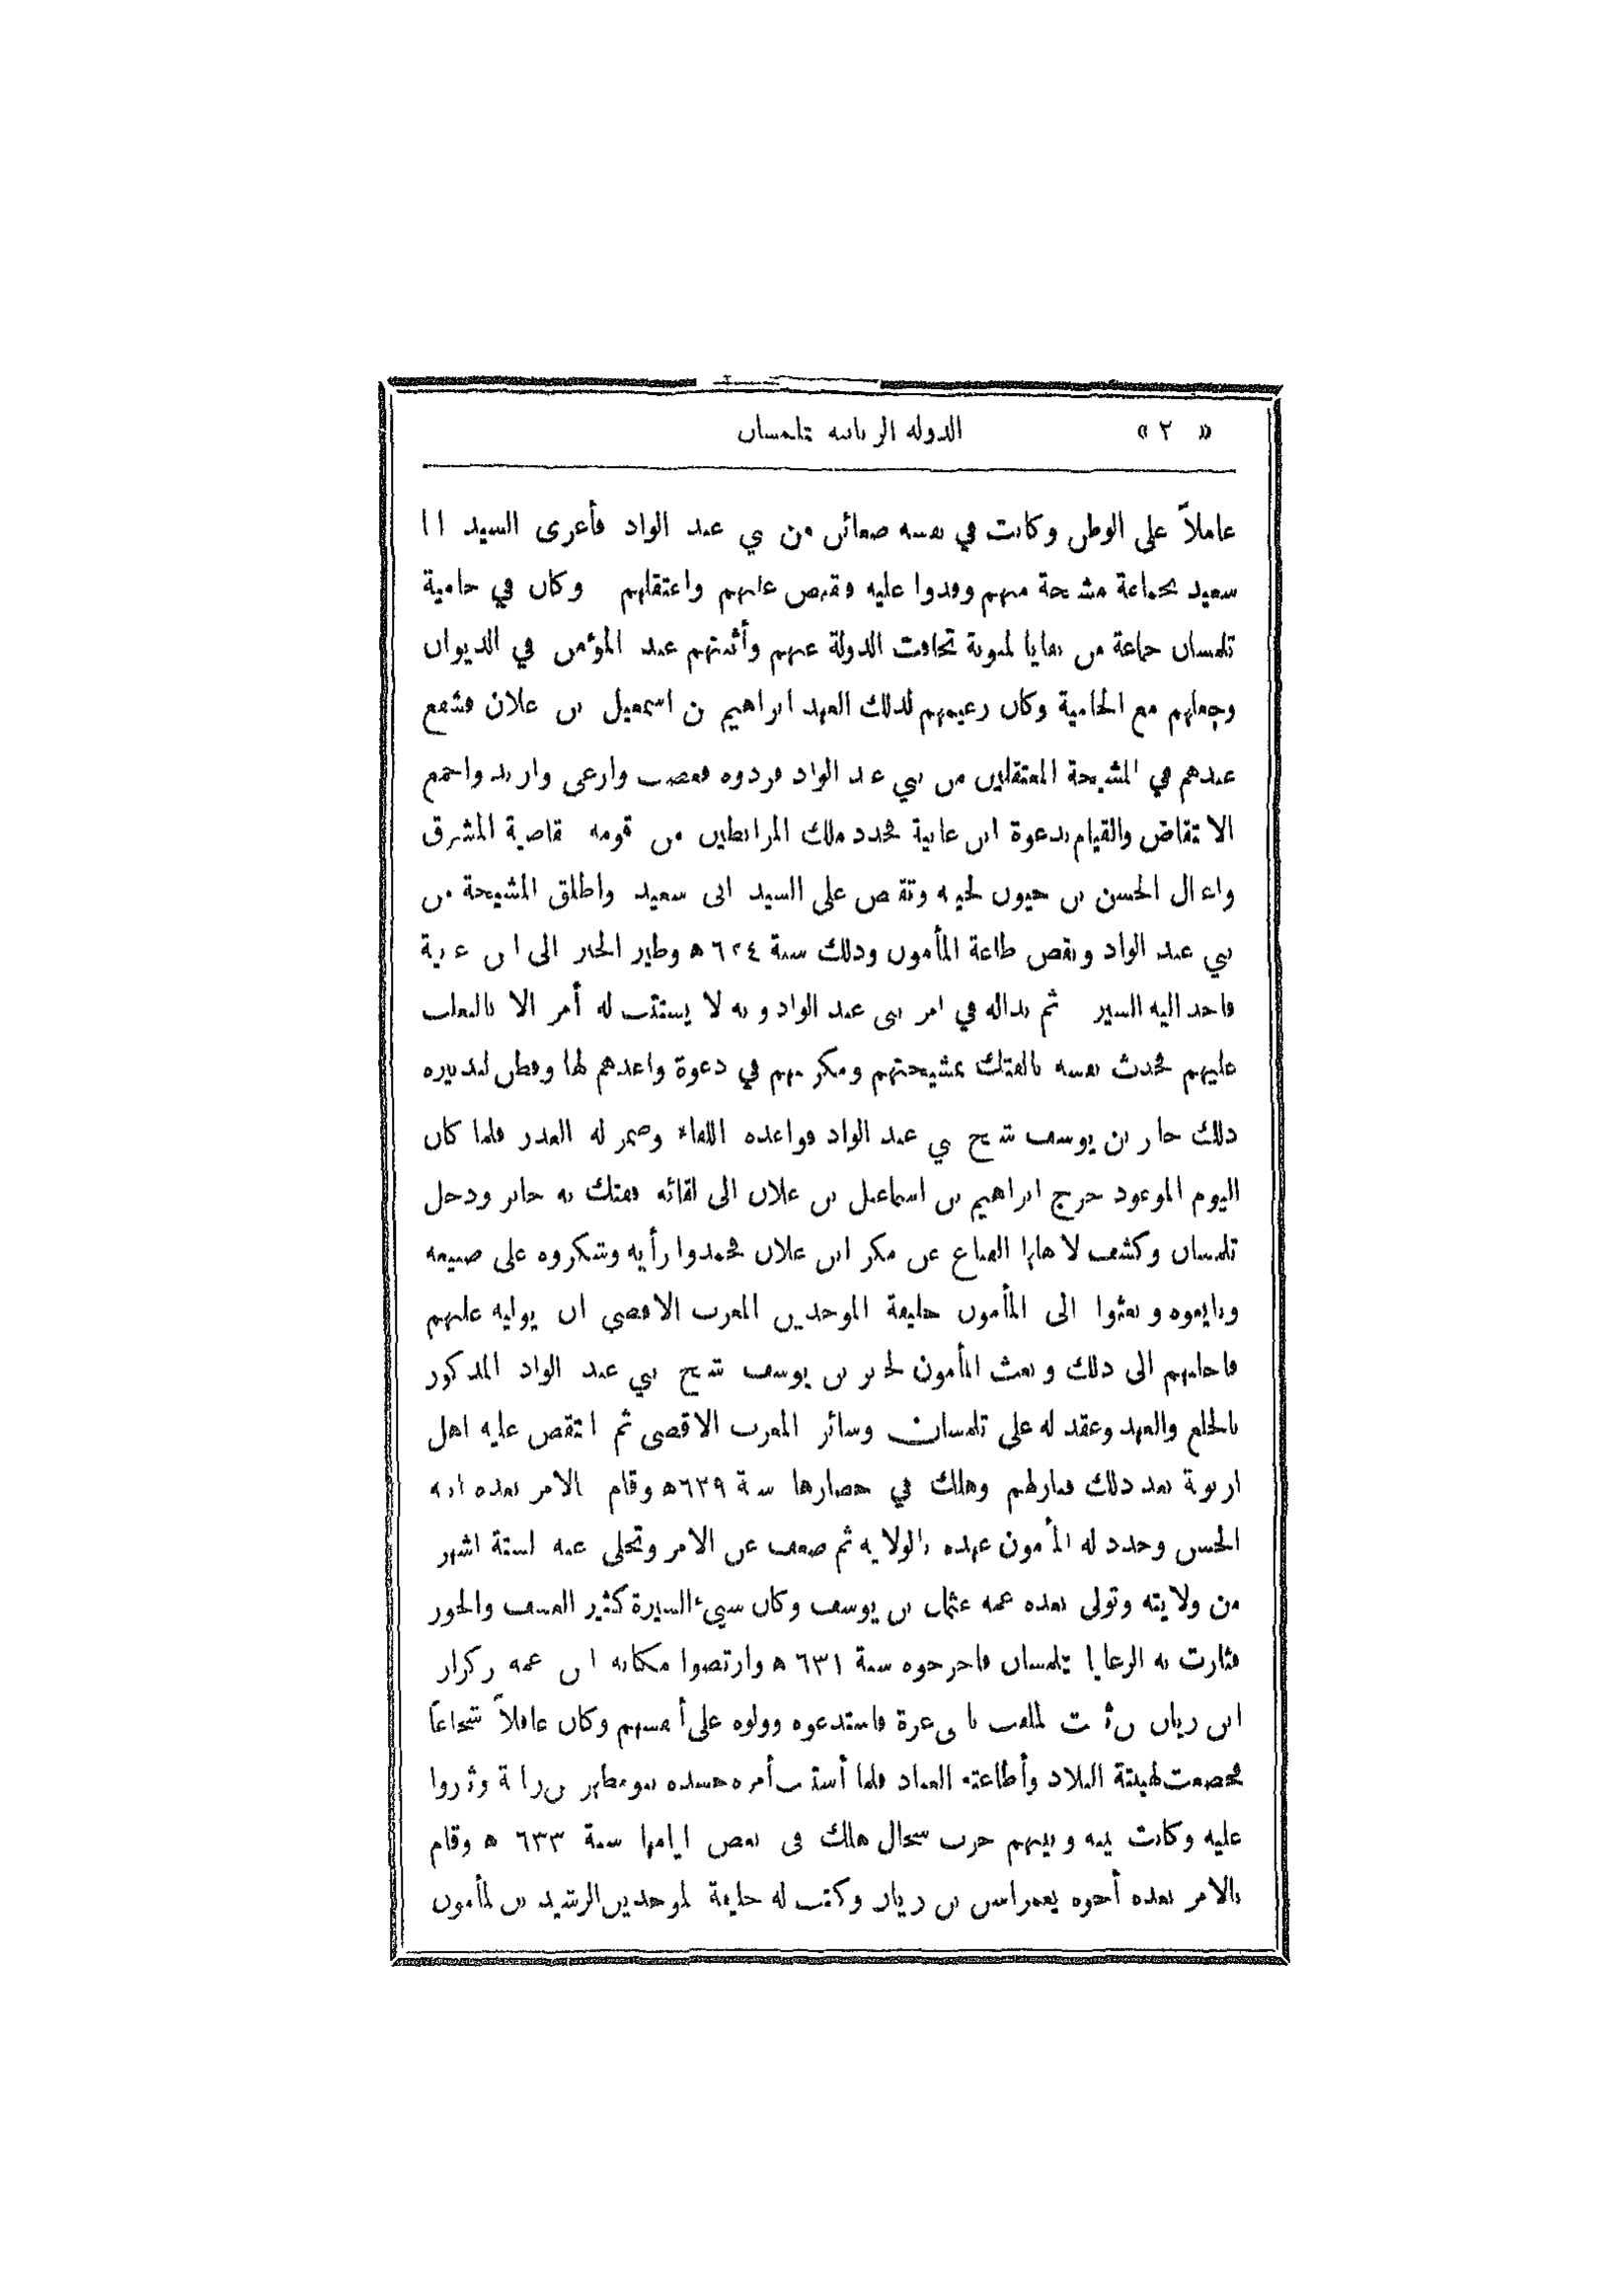 « ٢ » الدولة الزيانية بتلمسان
عاملاً على الوطن وكانت في نفسه ضغائن من بني عبد الواد فأغرى السيد ابا
سعيد بجماعة مشيخة منهم وفدوا عليه فقبض عليهم واعتقلهم وكان في حامية
تلمسان جماعة من بقايا لمتونة تجافت الدولة عنهم وأثبتهم عبد المؤمن في الديوان
وجعلهم مع الحامية وكان زعيمهم لذلك العهد ابراهيم بن اسمعيل بن علان فشفع
عندهم في المشيخة المعتقلين من بني عبد الواد فردوه فغضب وارغى وازبد واجمع
الانتقاض والقيام بدعوة ابن غانية مجدد ملك المرابطين من قومه بقاصية المشرق
واغتال الحسن بن حيون لحينه وتقبض على السيد ابي سعيد واطلق المشيخة من
بني عبد الواد ونقض طاعة المأمون وذلك سنة ٦٢٤ ه وطير الخبر الى ابن غانية
فاجد اليه السير ثم بدا له في امر بني عبد الواد وانه لا يستتب له أمر الا بالتغلب
عليهم فحدث نفسه بالفتك بمشيختهم ومكر بهم في دعوة واعدهم لها وفطن لتدبيره
ذلك جابر بن يوسف شيخ بني عبد الواد فواعده اللقاء وضمر له الغدر فلما كان
اليوم الموعود خرج ابراهيم بن اسماعيل بن علان الى لقائه ففتك به جابر ودخل
تلمسان وكشف لاهلها القناع عن مكر ابن علان فحمدوا رأيه وشكروه على صنيعه
وبايعوه وبعثوا الى المأمون خليفة الموحدين بالمغرب الاقصى ان يوليه عليهم
فاجابهم الى ذلك وبعث المأمون لجابر بن يوسف شيخ بني عبد الواد المذكور
بالخلع والعهد وعقد له على تلمسان وسائر المغرب الاقصى ثم انتقض عليه اهل
اربونة بعد ذلك فنازلهم وهلك في حصارها سنة ٦٢٩ه وقام بالامر بعده ابنه
الحسن وجدد له المأمون عهده بالولاية ثم ضعف عن الامر وتخلى عنه لستة اشهر
من ولايته وتولى بعده عمه عثمان بن يوسف وكان سيء السيرة كثير العسف والجور
فثارت به الرعايا بتلمسان فاخرجوه سنة ٦٣١ ه وارتضوا مكانه ابن عمه زكرار
ابن زيان بن ثابت الملقب بابي عزة فاستدعوه وولوه على أنفسهم وكان عاقلاً شجاعاً
فخضعت لهيبته البلاد وأطاعته العباد فلما أستتب أمره حسده بنو مطهر وثاروا
عليه وكانت بينه وبينهم حرب سجال هلك في بعض ايامها سنة ٦٣٣ ه وقام
بالامر بعده أخوه يغمراسن بن زيان وكتب له خليفة الموحدين الرشيد بن المأمون